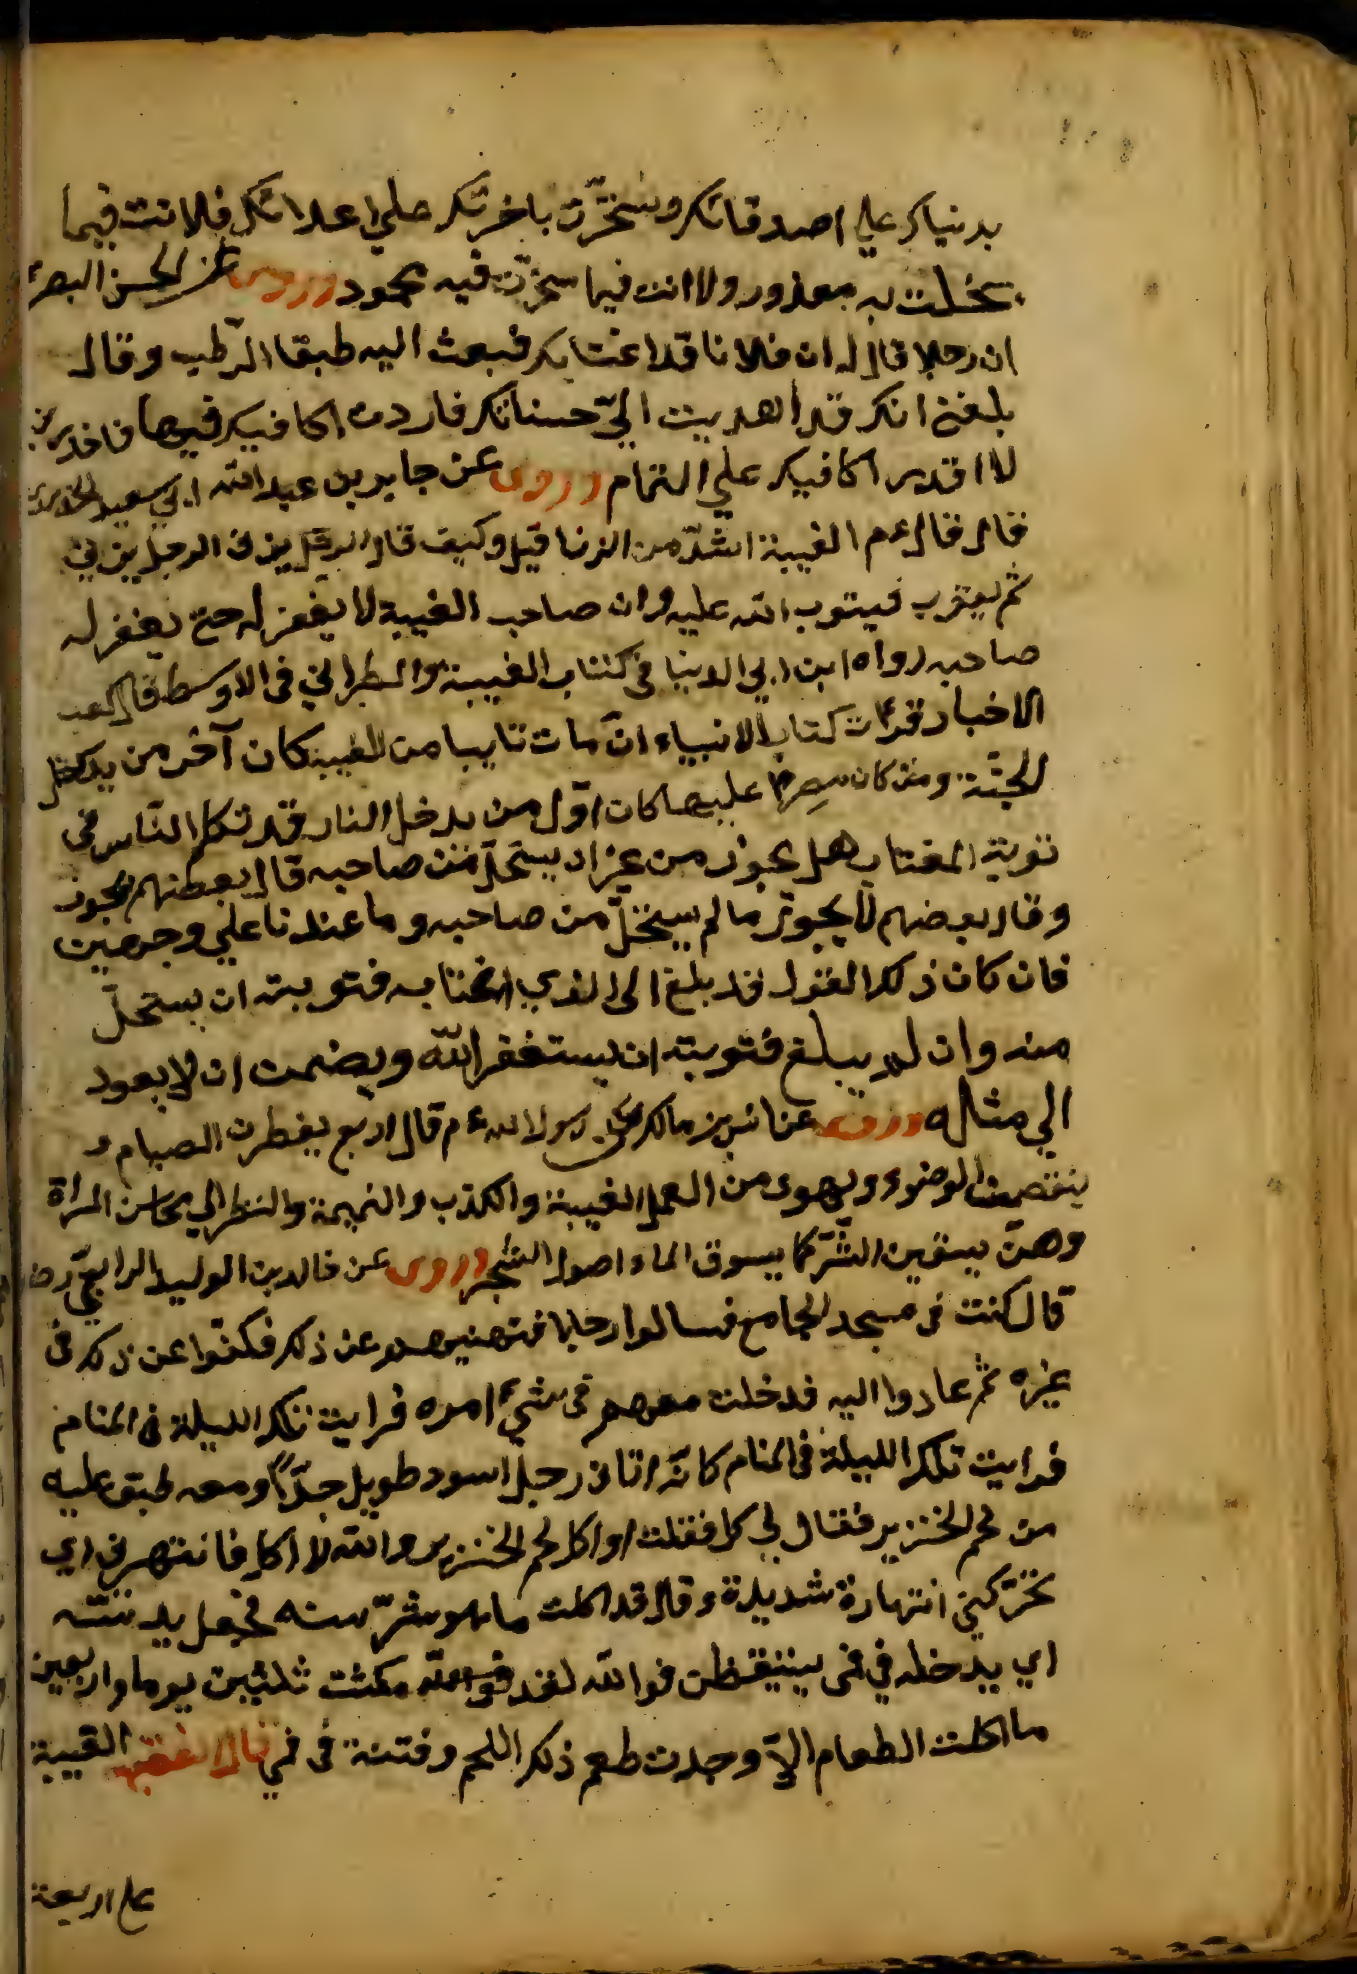 بدنياك على اصدقائك وسخرّت باخرتك على اعدائك فلا انت فيما
بخلت به بمعذور ولا انت فيما سخرّت فيه بمحمود وروى عن الحسن البصرى
ان رجلا قال له ان فلانا قد اغتابك فبعث اليه طبقا الرّطب وقال
بلغنى انك قد اهديت اليّ حسناتك فاردت اكافيك فيها
لا اقدر اكافيك على التمام وروى عن جابر بن عبد الله ابي سعيد الخدرى
قال قال عم الغيبة اشدّ من الزنا قيل وكيف قال الرجل يزنى
ثم يتوب فيتوب الله عليه وان صاحب الغيبة لا يغفر له حتى يغفر له
صاحبه رواه ابن ابي الدنيا فى كتاب الغيبة والطبراني فى الاوسط قال كعب
الاخبار قرات كتاب الانبياء انّ مات تايبا من الغيبة كان آخر من يدخل
الجنّة ومن كان مصرا عليها كان اوّل من يدخل النار قد تكلم النّاس في
توبة المغتاب هل يجوز من غير ان يستحلّ من صاحبه قال بعضهم يجوز
وقال بعضهم لا يجوز ما لم يستحلّ من صاحبه وما عندنا على وجهين
فان كان ذلك القول قد بلغ الى الذي اغتابه فتوبته ان يستحلّ
منه وان لم يبلغ فتوبته ان يستغفر الله ويضمن ان لا يعود
الي مثاله وروى عن انس بن مالك عن رسول الله عم قال اربع يفطرن الصيام و
ينقصن الوضوء ويهوى من العمل الغيبة والكذب والنميمة والنظر الي محاسن المراة
وهنّ يسقين الشّر كما يسوق الماء اصول الشّجر وروى عن خالد بن الوليد الرابعيّ رض
قال كنت فى مسجد الجامع فسالوا رجلا فنهيتهم عن ذلك فكفّوا عن ذلك فى
غيره ثم عادوا اليه فدخلت معهم فى شيء امره فرايت تلك الليلة فى المنام
فرايت تلك الليلة فى المنام كانّه اتانى رجل اسود طويل جدّاً ومعه طبق عليه
من لحم الخنزير فقال لي كل فقلت او اكل لحم الخنزير والله لا اكل فانتهرنى اي
تحرّكني انتهارة شديدة وقال قد اكلت ما هو شرّ منه فجعل
اي يدخله في فمى فوالله لقد مكثت ثلثين يوما واربعين
ما اكلت الطعام الاّ وجدت طعم ذلك اللحم وفتنة فى فمي قال الفقيه الغيبة
على اربعة